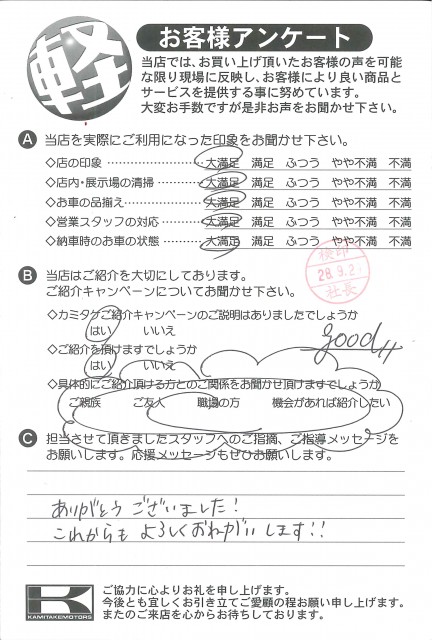 軽
お客様アンケート
当店では、お買い上げ頂いたお客様の声を可能
な限り現場に反映し、お客様により良い商品と
サービスを提供する事に努めています。
大変お手数ですが是非お声をお聞かせ下さい。
A 当店を実際にご利用になった印象をお聞かせ下さい。
◇店の印象 ………………… 大満足 満足 ふつう やや不満 不満
◇店内・展示場の清掃 ……… 大満足 満足 ふつう やや不満 不満
◇お車の品揃え …………… 大満足 満足 ふつう やや不満 不満
◇営業スタッフの対応 ……… 大満足 満足 ふつう やや不満 不満
◇納車時のお車の状態 ……… 大満足 満足 ふつう やや不満 不満
B 当店はご紹介を大切にしております。
ご紹介キャンペーンについてお聞かせ下さい。
検印
28.9.2
社長
◇カミタケご紹介キャンペーンのご説明はありましたでしょうか
はい いいえ
good
◇ご紹介を頂けますでしょうか
はい いいえ
◇具体的にご紹介頂ける方とのご関係をお聞かせ頂けますでしょうか
ご親族 ご友人 職場の方 機会があれば紹介したい
C 担当させて頂きましたスタッフへのご指摘、ご指導メッセージを
お願いします。応援メッセージもぜひお願いします。
ありがとうございました!
これからも よろしくおねがいします!!
K
KAMITAKEMOTORS
ご協力に心よりお礼を申し上げます。
今後とも宜しくお引き立てご愛顧の程お願い申し上げます。
またのご来店を心からお待ちしております。